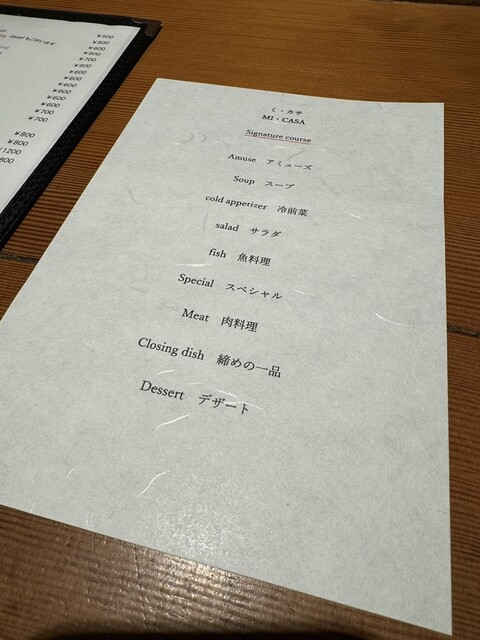 ミ・カサ
MI・CASA
Signature course
Amuse アミューズ
Soup スープ
cold appetizer 冷前菜
salad サラダ
fish 魚料理
Special スペシャル
Meat 肉料理
Closing dish 締めの一品
Dessert デザート
¥500
¥500
¥600
¥800
¥700
¥900
¥600
¥600
¥600
¥600
¥600
¥700
¥700
¥800
¥800